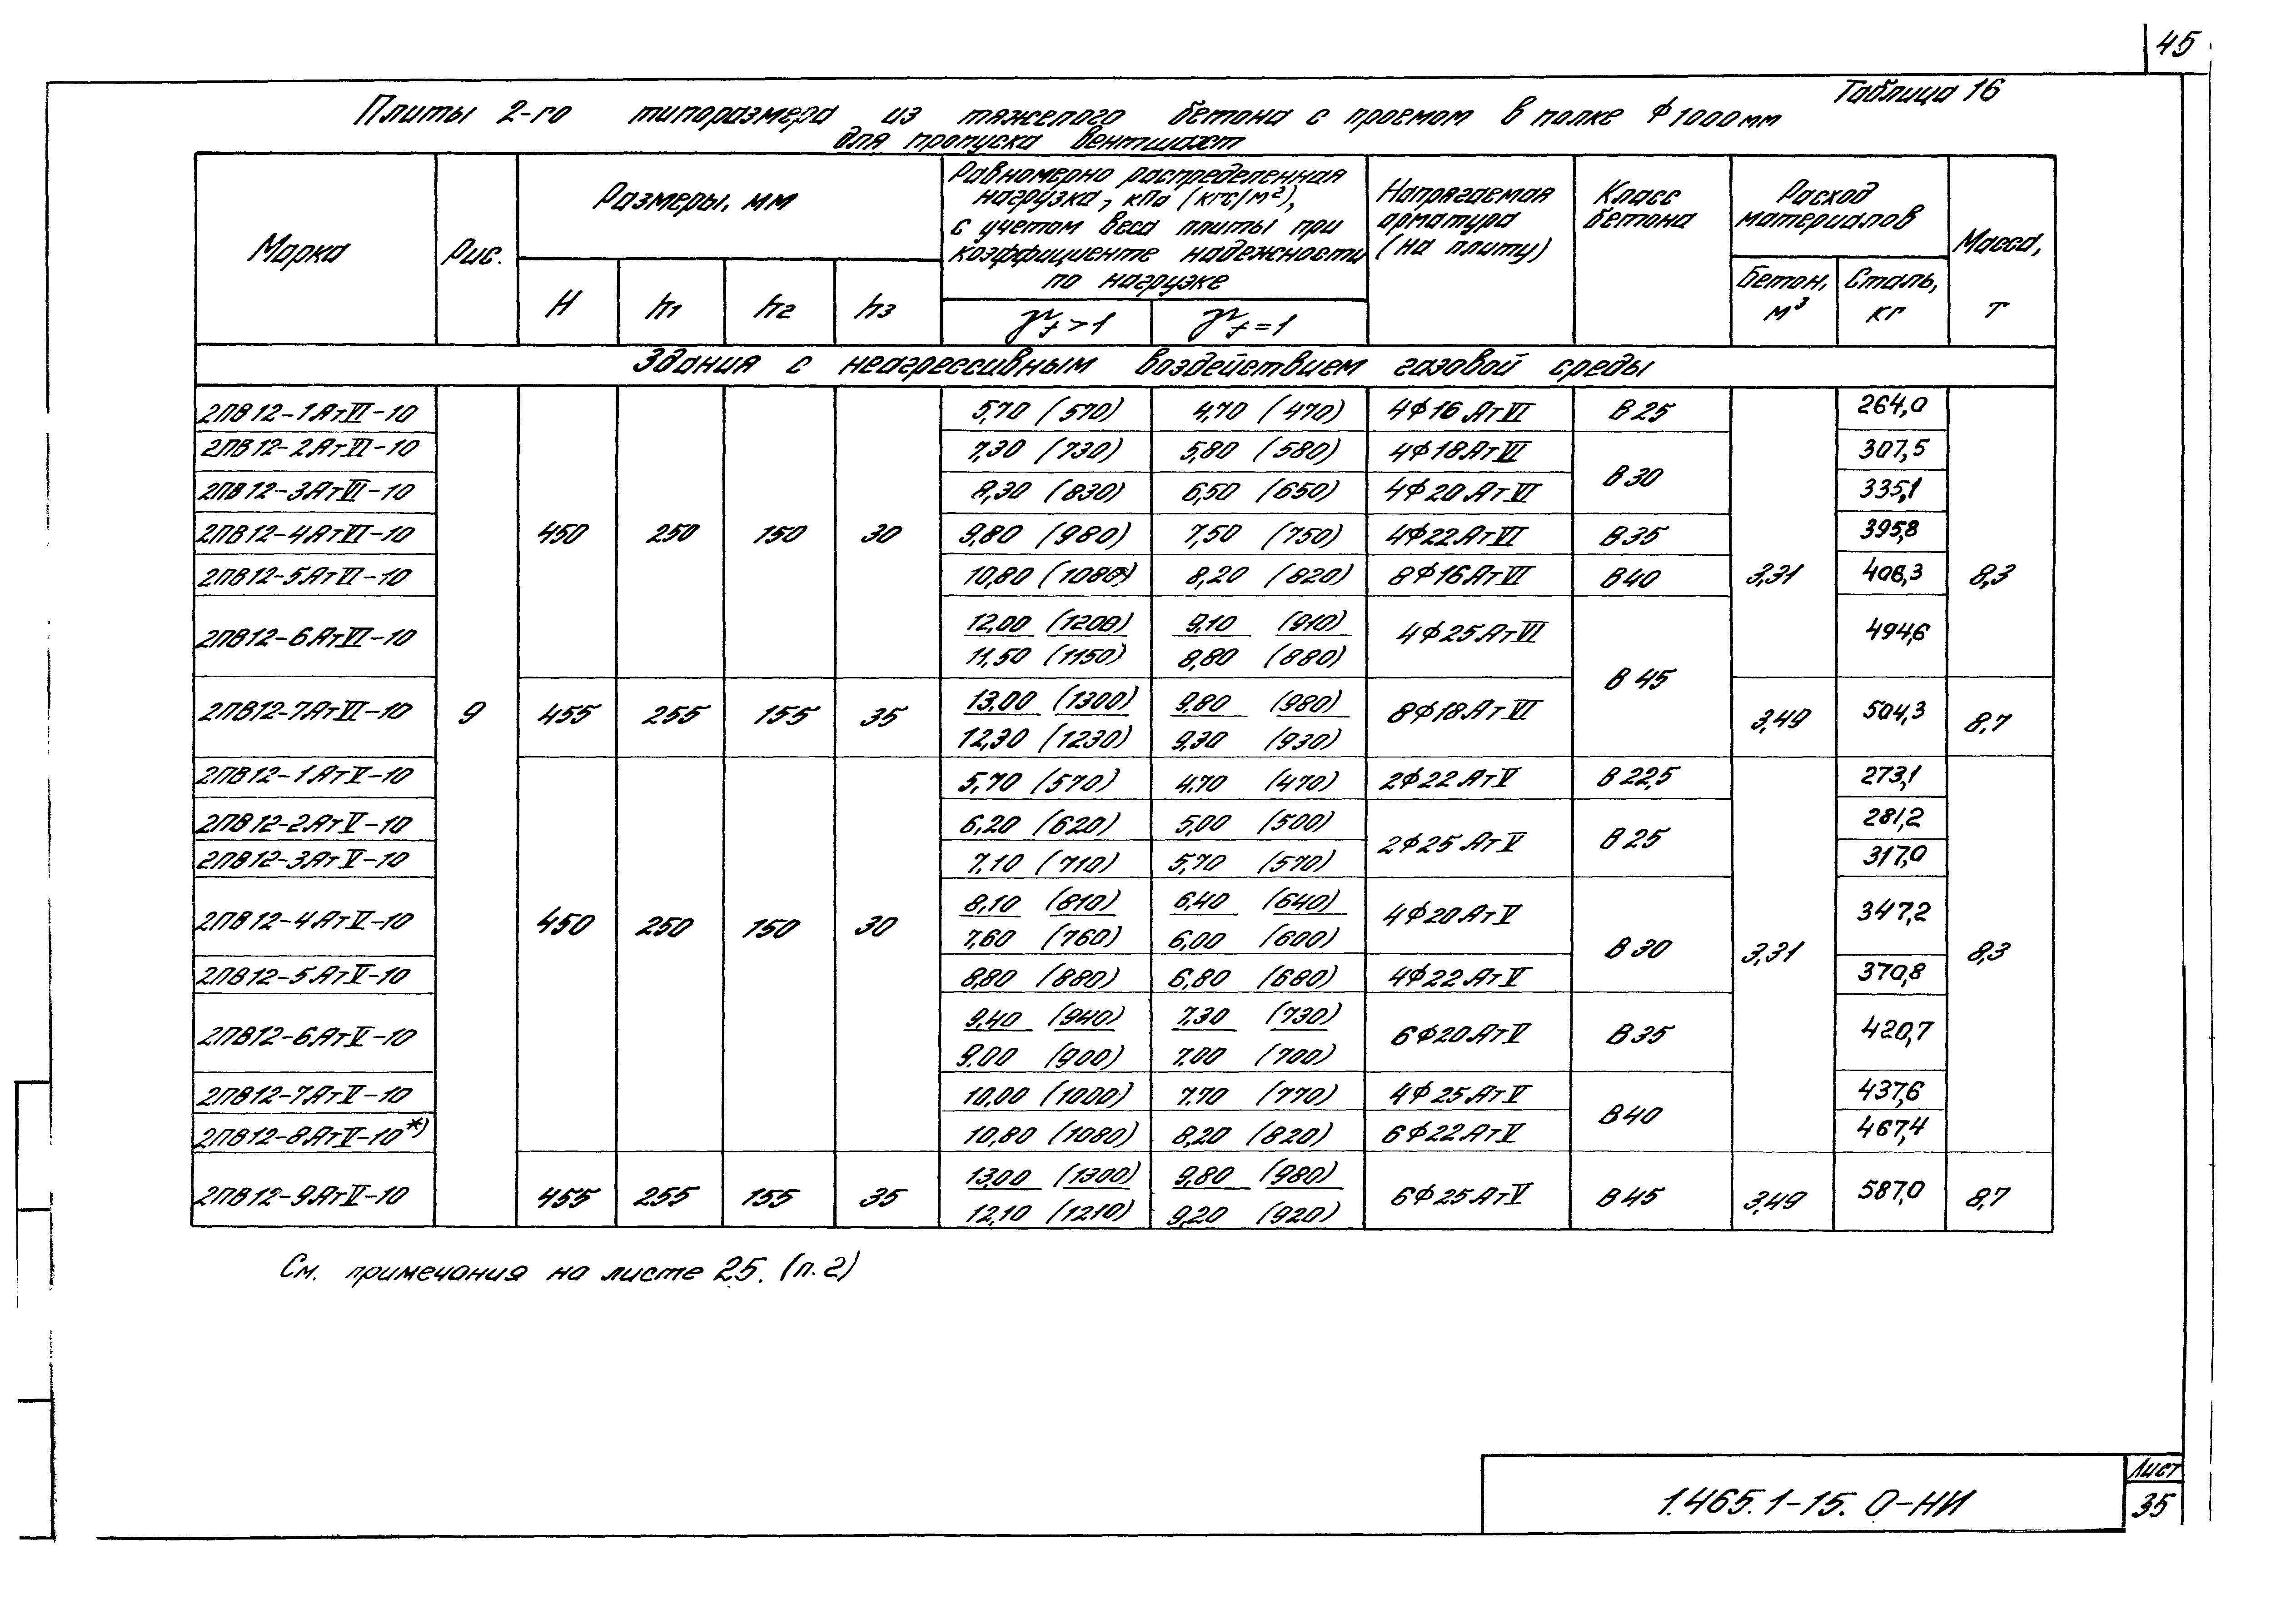 45
Таблица 16
Плиты 2-го типоразмера из тяжелого бетона с проемом в полке ϕ1000мм
для пропуска вентшахт
Марка
Рис.
Размеры, мм
Равномерно распределенная
нагрузка, кПа (кгс/м²),
с учетом веса плиты при
коэффициенте надежности
по нагрузке
Напрягаемая
арматура
(на плиту)
Класс
бетона
Расход
материалов
Масса,
т
H h1 h2 h3 γf>1 γf=1
Бетон, м³
Сталь, кг
Здания с неагрессивным воздействием газовой среды
2ПВ12-1АтVI-10 5,70 (570) 4,70 (470) 4ϕ16АтVI В25 264,0
2ПВ12-2АтVI-10 7,30 (730) 5,80 (580) 4ϕ18АтVI 307,5
В30
2ПВ12-3АтVI-10 8,30 (830) 6,50 (650) 4ϕ20АтVI 335,1
2ПВ12-4АтVI-10 450 250 150 30 9,80 (980) 7,50 (750) 4ϕ22АтVI В35 395,8
2ПВ12-5АтVI-10 10,80 (1080) 8,20 (820) 8ϕ16АтVI В40 3,31 406,3 8,3
12,00 (1200) 9,10 (910)
2ПВ12-6АтVI-10 4ϕ25АтVI 494,6
11,50 (1150) 8,80 (880)
В45
13,00 (1300) 9,80 (980)
2ПВ12-7АтVI-10 9 455 255 155 35 8ϕ18АтVI 3,49 504,3 8,7
12,30 (1230) 9,30 (930)
2ПВ12-1АтV-10 5,70 (570) 4,70 (470) 2ϕ22АтV В22,5 273,1
2ПВ12-2АтV-10 6,20 (620) 5,00 (500) 281,2
2ϕ25АтV В25
2ПВ12-3АтV-10 7,10 (710) 5,70 (570) 317,0
8,10 (810) 6,40 (640)
2ПВ12-4АтV-10 450 250 150 30 4ϕ20АтV 347,2
7,60 (760) 6,00 (600)
В30 3,31 8,3
2ПВ12-5АтV-10 8,80 (880) 6,80 (680) 4ϕ22АтV 370,8
9,40 (940) 7,30 (730)
2ПВ12-6АтV-10 6ϕ20АтV В35 420,7
9,00 (900) 7,00 (700)
2ПВ12-7АтV-10 10,00 (1000) 7,70 (770) 4ϕ25АтV 437,6
В40
2ПВ12-8АтV-10*) 10,80 (1080) 8,20 (820) 6ϕ22АтV 467,4
13,00 (1300) 9,80 (980)
2ПВ12-9АтV-10 455 255 155 35 6ϕ25АтV В45 3,49 587,0 8,7
12,10 (1210) 9,20 (920)
См. примечания на листе 25. (п. 2)
1.465.1-15. 0-НИ
Лист
35